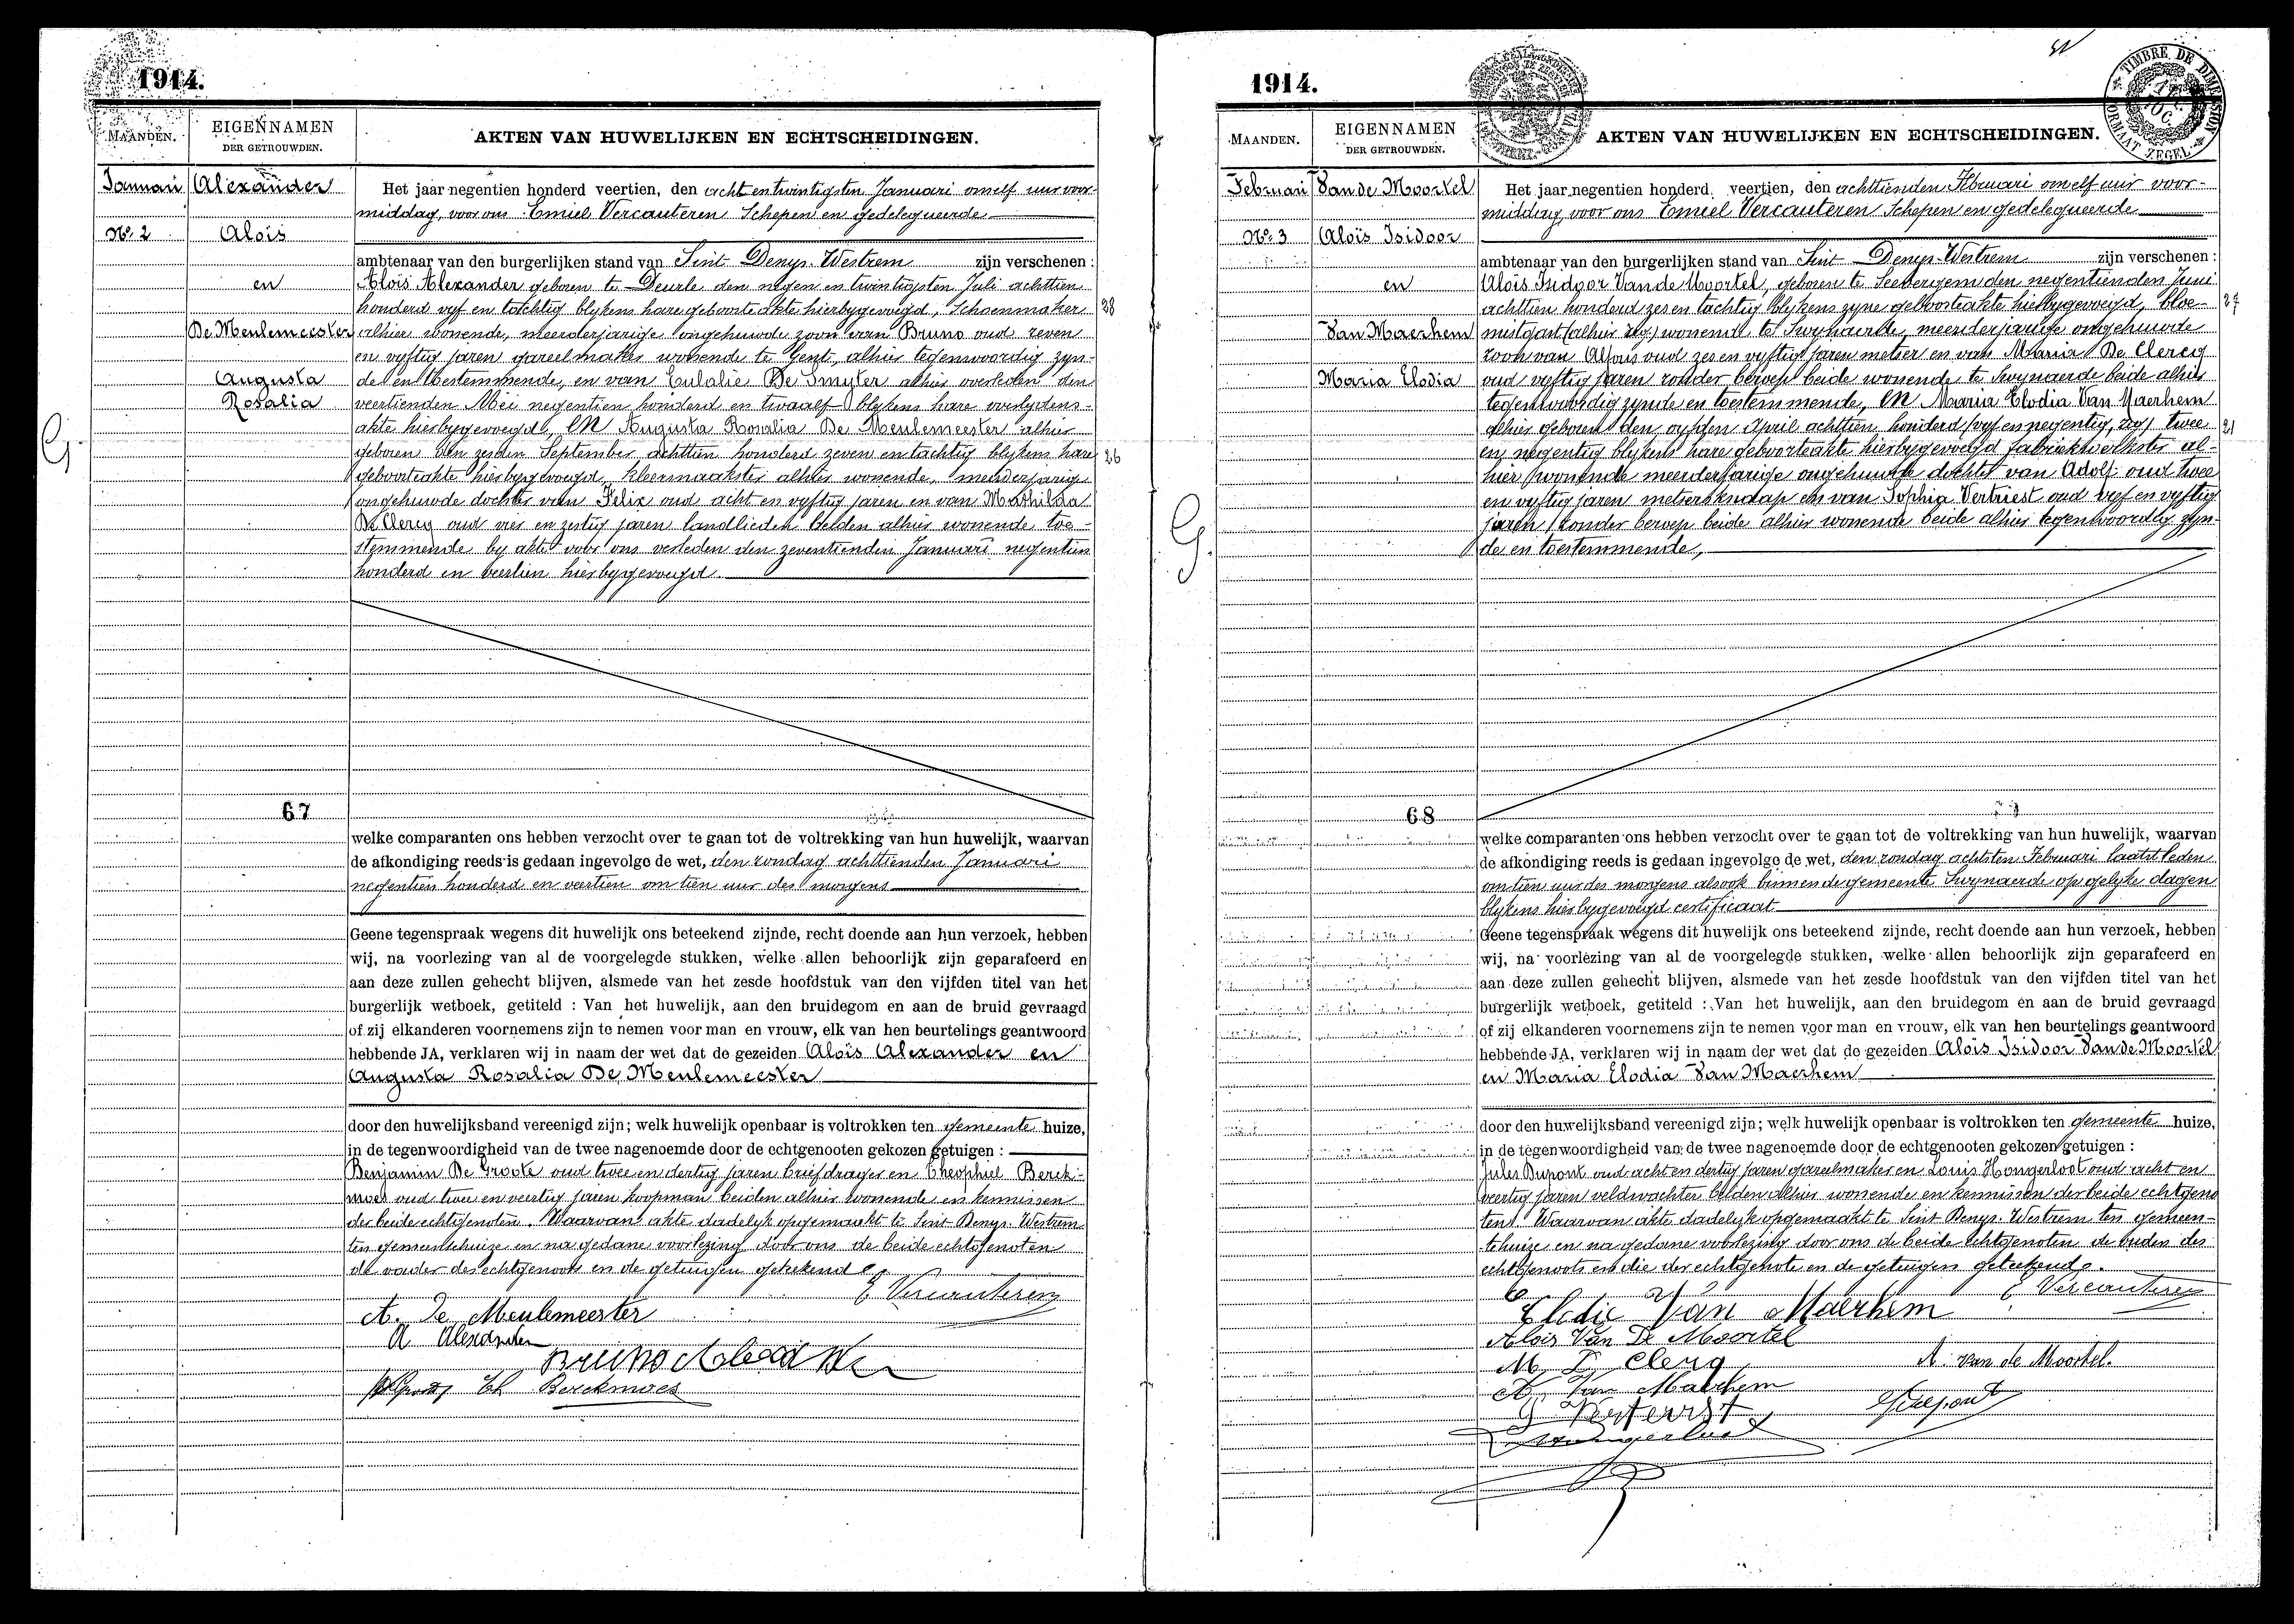 1914.
MAANDEN.
EIGENNAMEN
DER GETROUWDEN.
AKTEN VAN HUWELIJKEN EN ECHTSCHEIDINGEN.
Januari
No. 2
Alexander
Aloïs
en
De Meulemeester
Augusta
Rosalia
Het jaar negentien honderd veertien, den acht en twintigsten Januari om elf uur voor-
middag, voor ons Emiel Vercauteren Schepen en gedelegueerde
ambtenaar van den burgerlijken stand van Sint Denys-Westrem zijn verschenen :
Aloïs Alexander geboren te Deurle den negen en twintigsten Juli achttien
honderd vyf en tachtig blykens hare geboorteakte hierbygevoegd, Schoenmaker
28
alhier wonende, meerderjarige ongehuwde zoon van Bruno oud zeven
en vyftig jaren gareelmaker wonende te Gent, alhier tegenwoordig zyn-
de en toestemmende, en van Eulalie De Smyter alhier overleden den
veertienden Mei negentien honderd en twaalf blykens hare overlydens-
akte hierbygevoegd, EN Augusta Rosalia De Meulemeester alhier
geboren den zesden September achttien honderd zeven en tachtig blykens hare
26
geboorteakte hierbygevoegd, kleermaakster alhier wonende, meerderjarige
ongehuwde dochter van Felix oud acht en vyftig jaren en van Mathilda
De Clercq oud vier en zestig jaren landlieden beiden alhier wonende toe-
stemmende by akte voor ons verleden den zeventienden Januari negentien
honderd en veertien hierbygevoegd.
67
welke comparanten ons hebben verzocht over te gaan tot de voltrekking van hun huwelijk, waarvan
de afkondiging reeds is gedaan ingevolge de wet, den zondag achttienden Januari
negentien honderd en veertien om tien uur des morgens
Geene tegenspraak wegens dit huwelijk ons beteekend zijnde, recht doende aan hun verzoek, hebben
wij, na voorlezing van al de voorgelegde stukken, welke allen behoorlijk zijn geparafeerd en
aan deze zullen gehecht blijven, alsmede van het zesde hoofdstuk van den vijfden titel van het
burgerlijk wetboek, getiteld : Van het huwelijk, aan den bruidegom en aan de bruid gevraagd
of zij elkanderen voornemens zijn te nemen voor man en vrouw, elk van hen beurtelings geantwoord
hebbende JA, verklaren wij in naam der wet dat de gezeiden Aloïs Alexander en
Augusta Rosalia De Meulemeester
door den huwelijksband vereenigd zijn; welk huwelijk openbaar is voltrokken ten gemeente huize,
in de tegenwoordigheid van de twee nagenoemde door de echtgenooten gekozen getuigen :
Benjamin De Groote oud twee en dertig jaren briefdrager en Theophiel Berck-
moes oud twee en veertig jaren koopman beiden alhier wonende en kennissen
der beide echtgenoten. Waarvan akte dadelyk opgemaakt te Sint Denys-Westrem
ten gemeentehuize en na gedane voorlezing door ons de beide echtgenoten
de vader des echtgenoots en de getuigen geteekend.
E Vercauteren
A. De Meulemeester
A Alexander
Bruno Alexander
Th Berckmoes
1914.
TIMBRE DE DIMENSION
FORMAT ZEGEL
MAANDEN.
EIGENNAMEN
DER GETROUWDEN.
AKTEN VAN HUWELIJKEN EN ECHTSCHEIDINGEN.
Februari
No. 3
Van de Moortel
Aloïs Isidoor
en
Van Maerhem
Maria Elodia
Het jaar negentien honderd veertien, den achttienden Februari om elf uur voor-
middag, voor ons Emiel Vercauteren Schepen en gedelegueerde
ambtenaar van den burgerlijken stand van Sint Denys-Westrem zijn verschenen :
Aloïs Isidoor Van de Moortel, geboren te Seeverghem den negentienden Juni
achttien honderd zes en tachtig blykens zyne geboorteakte hierbygevoegd, bloe-
27
mist gast (alhier zeg) wonende te Swynaerde, meerderjarige ongehuwde
zoon van Alfons oud zes en vyftig jaren metser en van Maria De Clercq
oud vyftig jaren zonder beroep beide wonende te Swynaerde beide alhier
tegenwoordig zynde en toestemmende, EN Maria Elodia Van Maerhem
alhier geboren den vyfden April achttien honderd (vyf en negentig, zeg) twee
21
en negentig blykens hare geboorteakte hierbygevoegd fabriekwerkster al-
hier wonende meerderjarige ongehuwde dochter van Adolf oud twee
en vyftig jaren metserknaap en van Sophia Vertriest oud vyf en vyftig
jaren zonder beroep beide alhier wonende beide alhier tegenwoordig zyn-
de en toestemmende,
68
welke comparanten ons hebben verzocht over te gaan tot de voltrekking van hun huwelijk, waarvan
de afkondiging reeds is gedaan ingevolge de wet, den zondag achtsten Februari laatstleden
om tien uur des morgens alsook binnen de gemeente Swynaerde op gelyke dagen
blykens hierbygevoegd certificaat
Geene tegenspraak wegens dit huwelijk ons beteekend zijnde, recht doende aan hun verzoek, hebben
wij, na voorlezing van al de voorgelegde stukken, welke allen behoorlijk zijn geparafeerd en
aan deze zullen gehecht blijven, alsmede van het zesde hoofdstuk van den vijfden titel van het
burgerlijk wetboek, getiteld : Van het huwelijk, aan den bruidegom en aan de bruid gevraagd
of zij elkanderen voornemens zijn te nemen voor man en vrouw, elk van hen beurtelings geantwoord
hebbende JA, verklaren wij in naam der wet dat de gezeiden Aloïs Isidoor Van de Moortel
en Maria Elodia Van Maerhem
door den huwelijksband vereenigd zijn; welk huwelijk openbaar is voltrokken ten gemeente huize,
in de tegenwoordigheid van de twee nagenoemde door de echtgenooten gekozen getuigen :
Jules Dupont oud acht en dertig jaren gareelmaker en Louis Hongerloot oud acht en
veertig jaren veldwachter beiden alhier wonende en kennissen der beide echtgeno
ten. Waarvan akte dadelyk opgemaakt te Sint Denys-Westrem ten gemeen-
tehuize en na gedane voorlezing door ons de beide echtgenoten de ouders des
echtgenoots en die der echtgenote en de getuigen geteekend.
E Vercauteren
Elodie Van Maerhem
Alois Van De Moortel
M D Clerq
A. Van de Moortel.
A. Van Maerhem
Dupont
Hongerloot